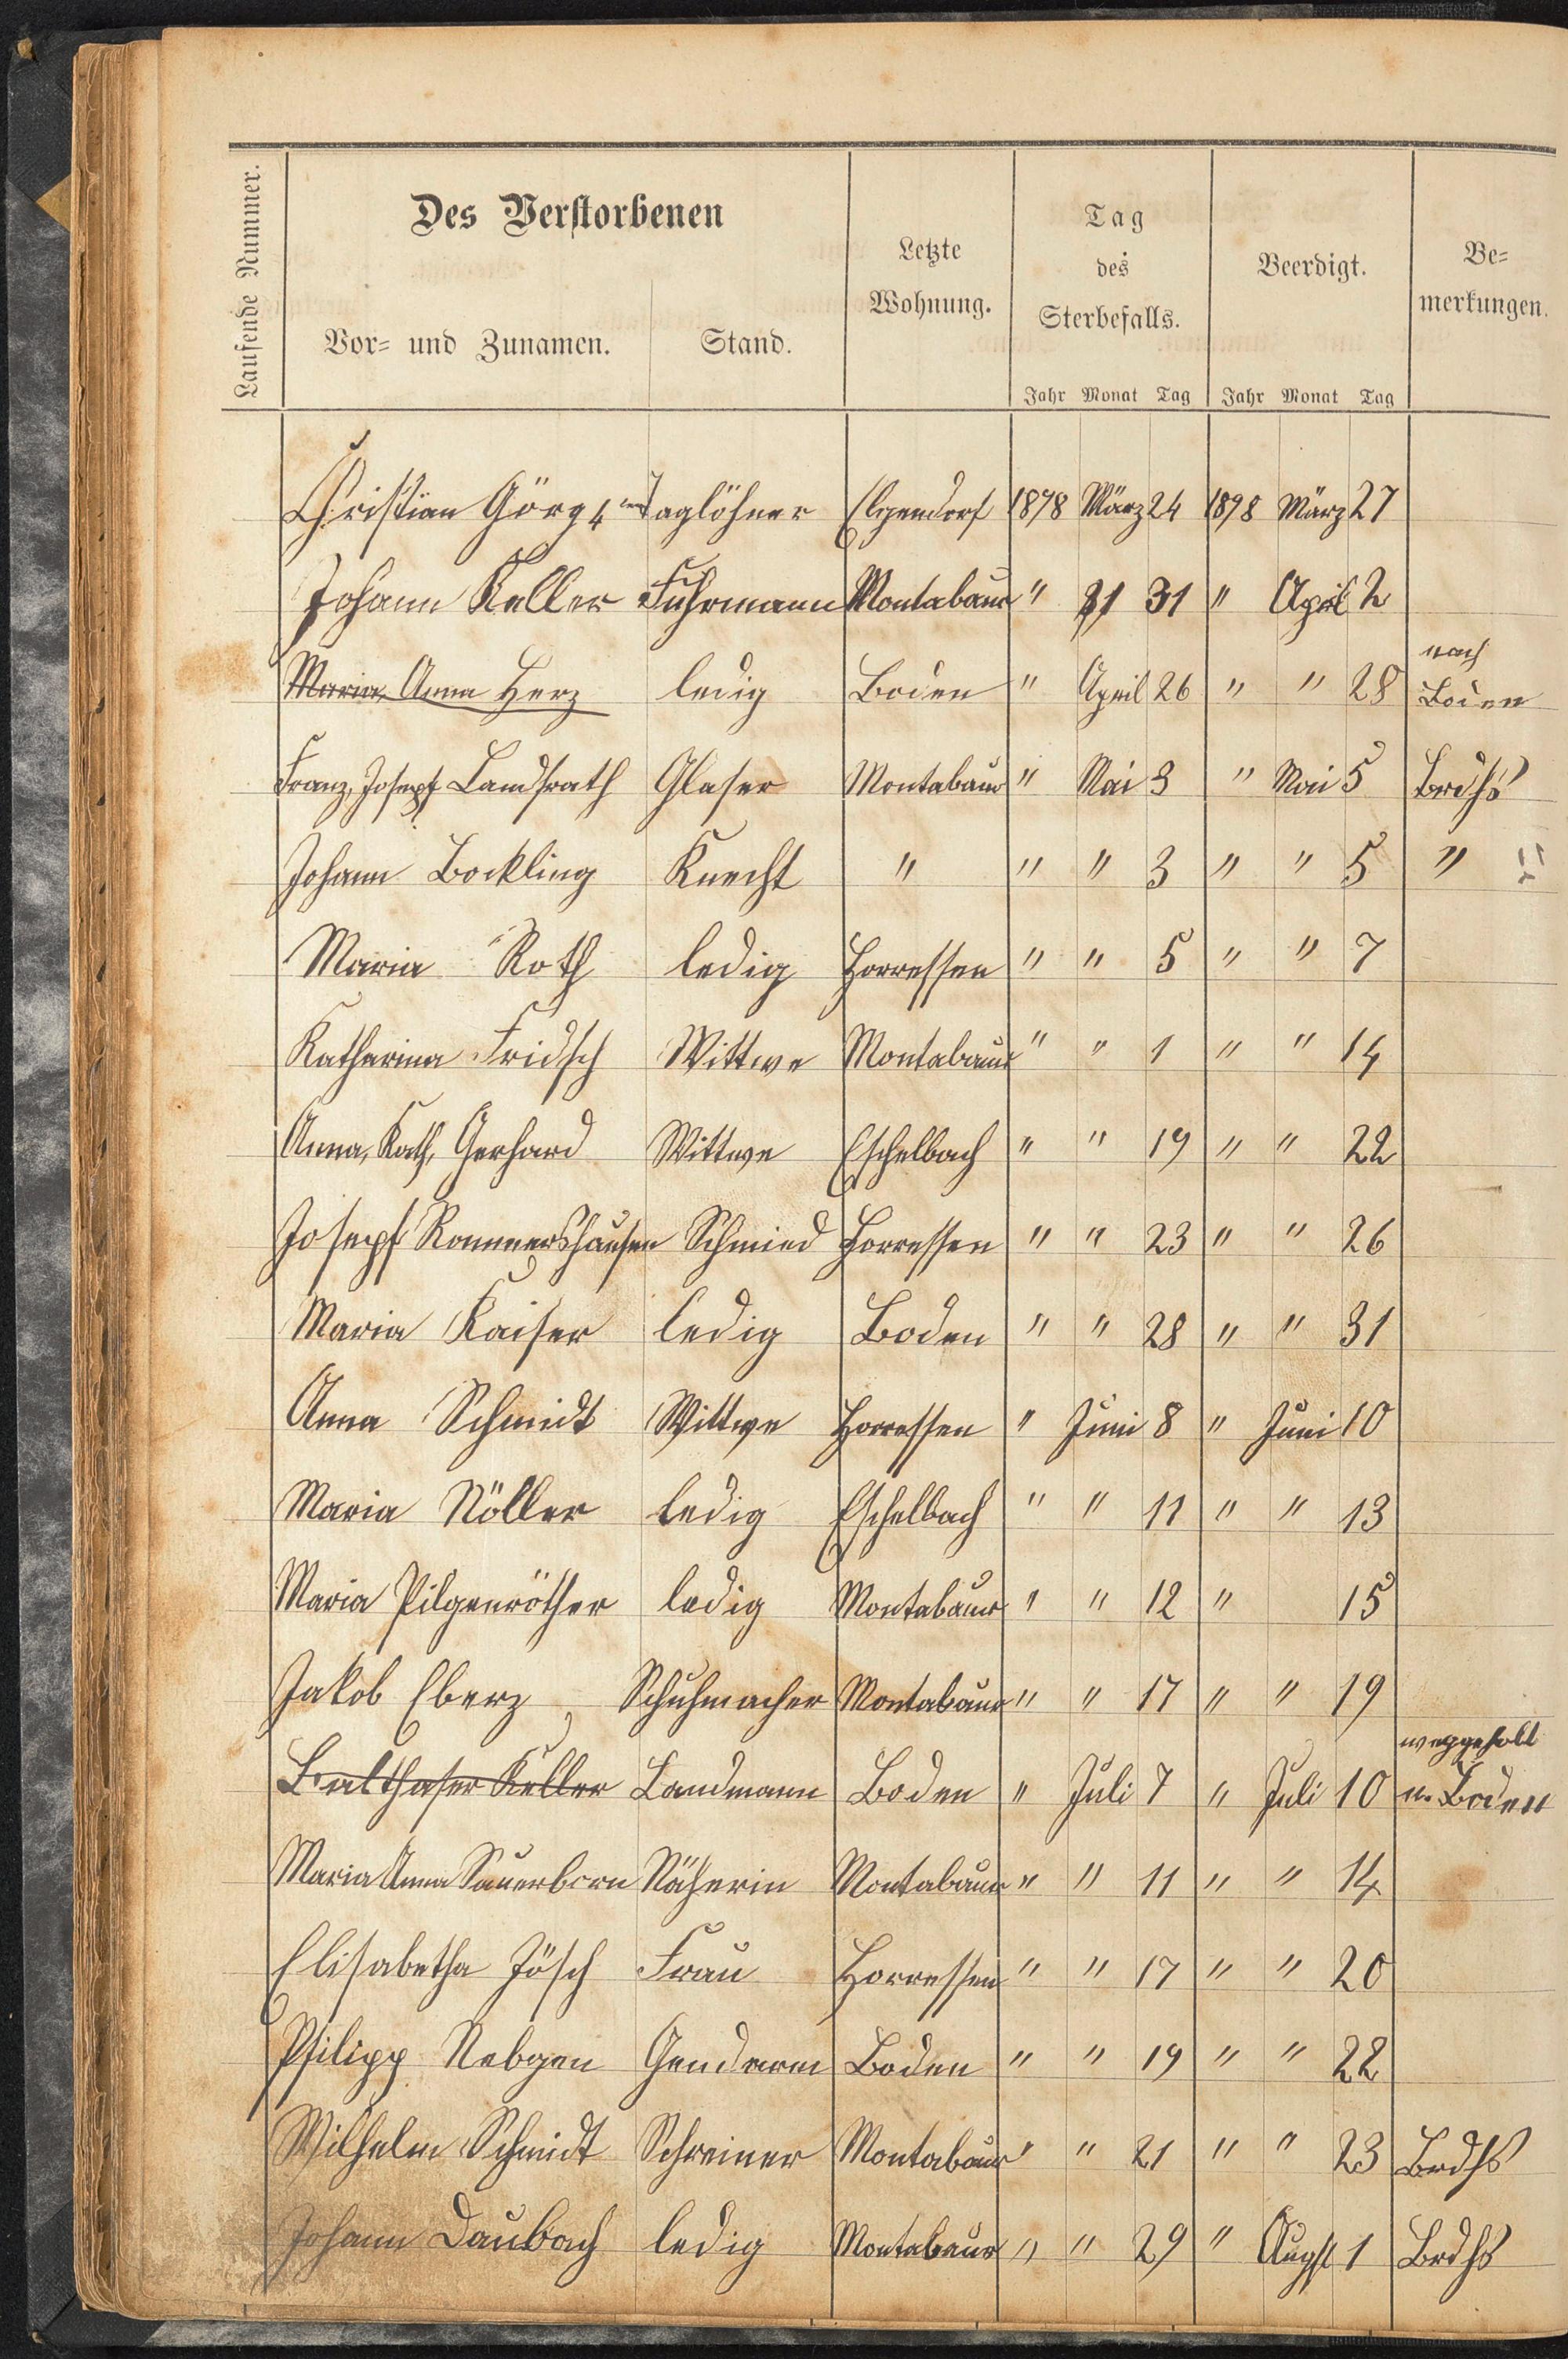 Laufende Nummer.
Des Verstorbenen
Vor- und Zunamen. Stand.
Letzte Wohnung.
Tag des Sterbefalls.
Beerdigt.
Be-merkungen.
Jahr Monat Tag Jahr Monat Tag
Christian Görg 4 Taglöhner Elgendorf 1898 März 24 1898 März 27
Johann Keller Fuhrmann Montabaur " 31 " April 2
nach
Maria, Anna Herz ledig Boden " April 26 " " 28 Boden
Franz, Joseph Landsrath Glaser Montabaur " Mai 3 " Mai 5 Brdhs
Johann Bockling Knecht " " " 3 " " 5 "
Maria Roth ledig Horressen " " 5 " " 7
Katharina Fridsch Wittwe Montabaur " " 1 " " 14
Anna, Kath, Gerhard Wittwe Eschelbach " " 19 " " 22
Joseph Rommershausen Schmied Horressen " " 23 " " 26
Maria Kaiser ledig Boden " " 28 " " 31
Anna Schmidt Wittwe Horressen " Juni 8 " Juni 10
Maria Nöller ledig Eschelbach " " 11 " " 13
Maria Pilgenröther ledig Montabaur " " 12 " 15
Jakob Eberz, Schuhmacher Montabaur " " 17 " " 19
weggeholt
Balthaser Keller Landmann Boden " Juli 7 " Juli 10 n. Boden
Maria Anna Sauerborn Näherin Montabaur " " 11 " " 14
Elisabetha Jösch Frau Horressen " " 17 " " 20
Philipp Nebgen Gendarm Boden " " 19 " " 22
Wilhelm Schmidt Schreiner Montabaur " " 21 " " 23 Brdhs
Johann Daubach ledig Montabaur " " 29 " Augst 1 Brdhs